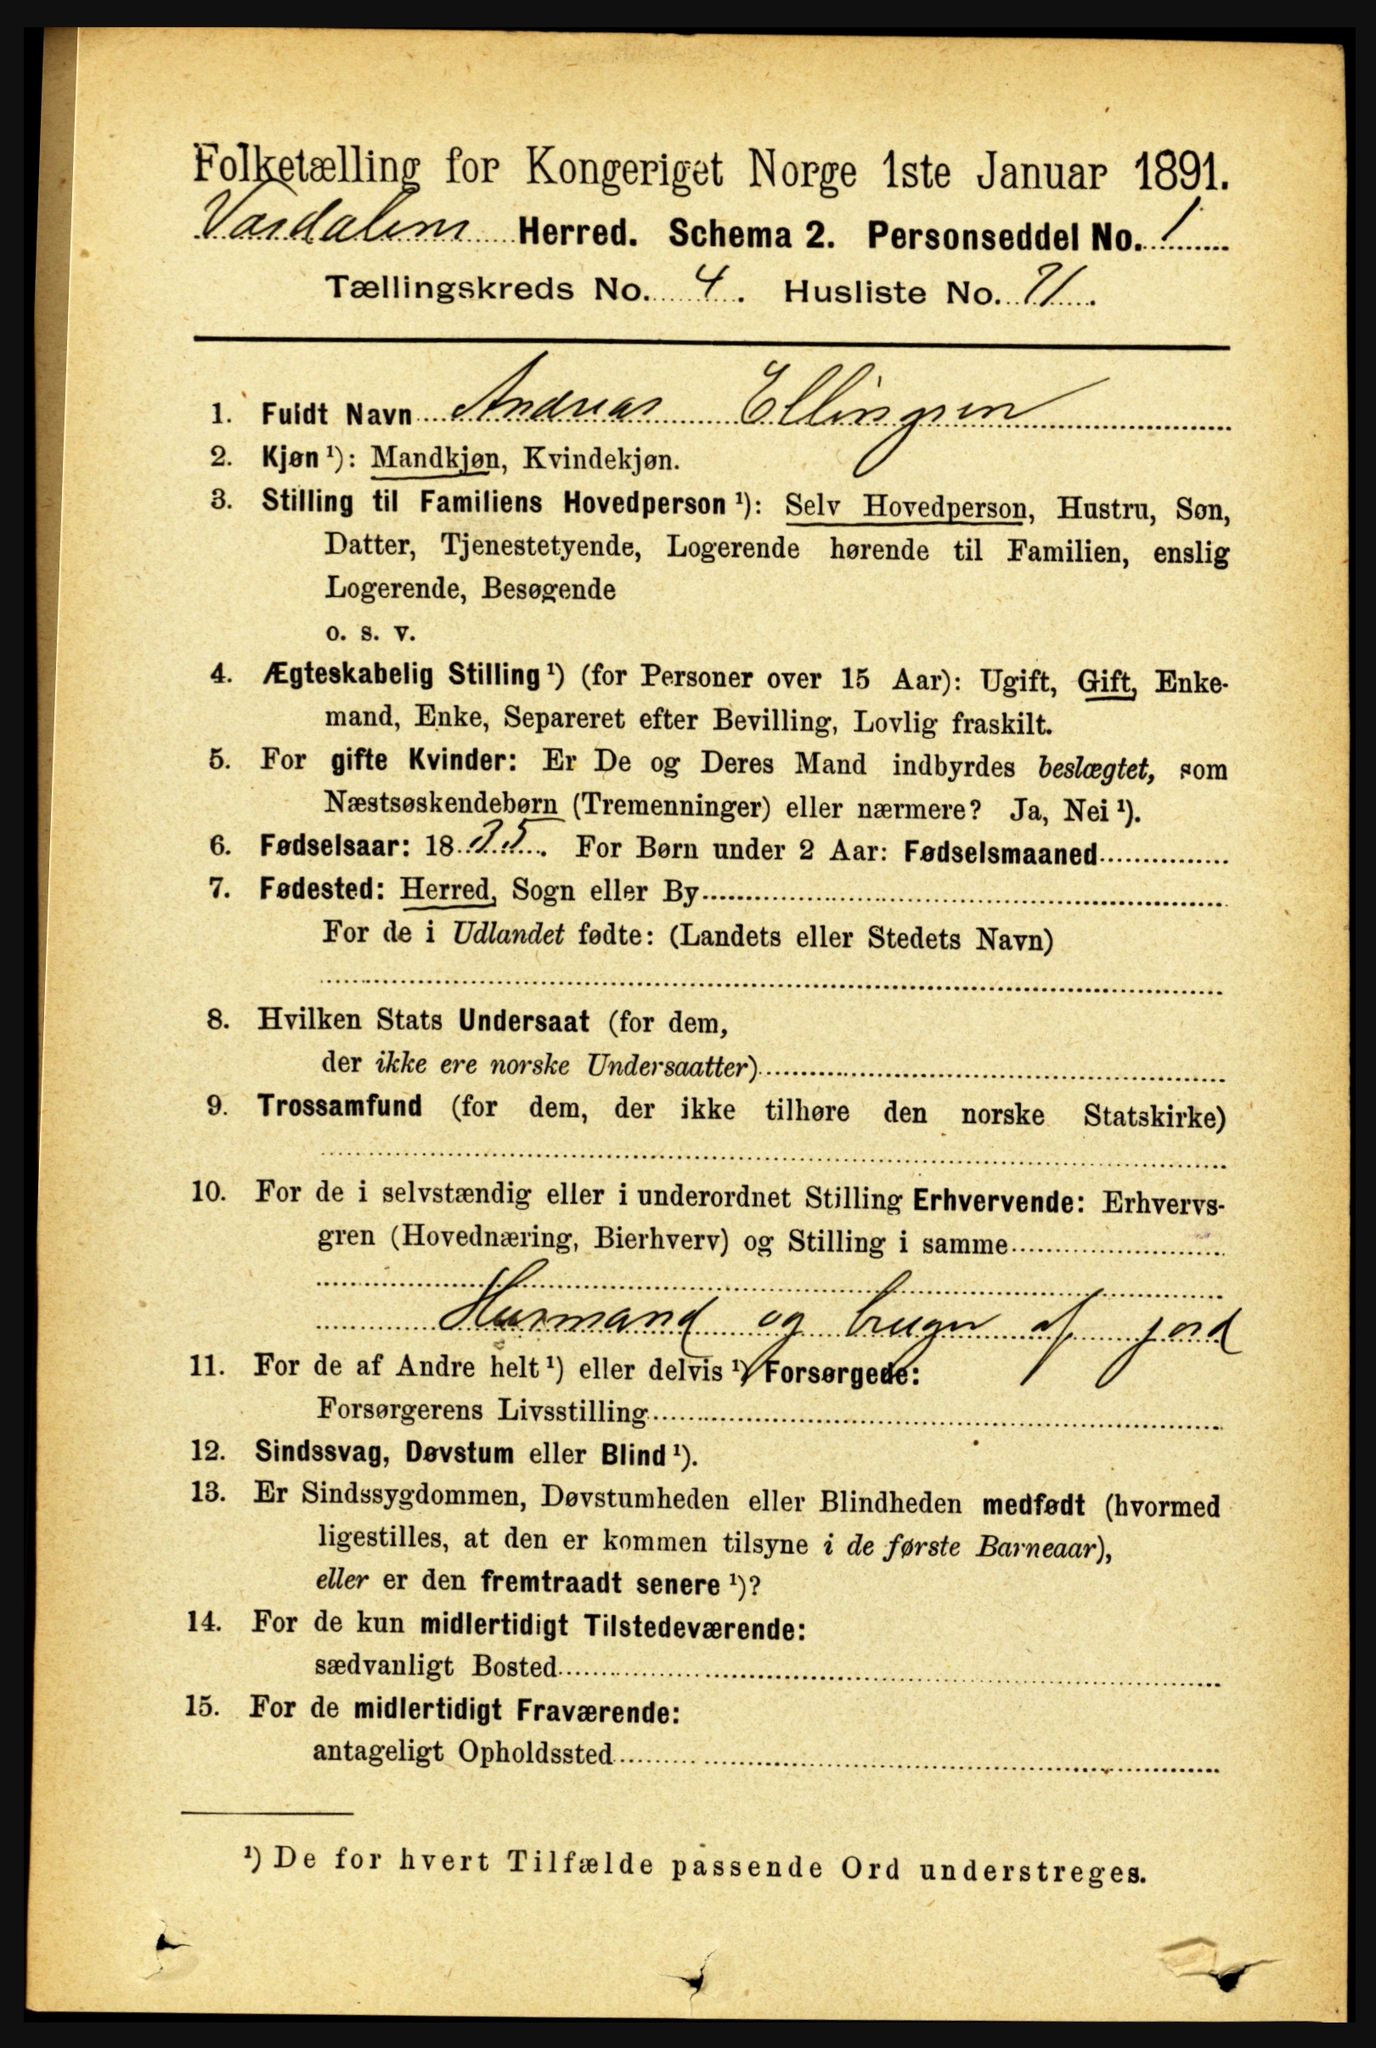 Folketælling for Kongeriget Norge 1ste Januar 1891.
Værdalens Herred. Schema 2. Personseddel No. 1
Tællingskreds No. 4. Husliste No. 71.
1. Fuldt Navn Andreas Ellingsen
2. Kjøn¹): Mandkjøn, Kvindekjøn.
3. Stilling til Familiens Hovedperson¹): Selv Hovedperson, Hustru, Søn,
Datter, Tjenestetyende, Logerende hørende til Familien, enslig
Logerende, Besøgende
o. s. v.
4. Ægteskabelig Stilling¹) (for Personer over 15 Aar): Ugift, Gift, Enke-
mand, Enke, Separeret efter Bevilling, Lovlig fraskilt.
5. For gifte Kvinder: Er De og Deres Mand indbyrdes beslægtet, som
Næstsøskendebørn (Tremenninger) eller nærmere? Ja, Nei¹).
6. Fødselsaar: 1835. For Børn under 2 Aar: Fødselsmaaned
7. Fødested: Herred, Sogn eller By
For de i Udlandet fødte: (Landets eller Stedets Navn)
8. Hvilken Stats Undersaat (for dem,
der ikke ere norske Undersaatter)
9. Trossamfund (for dem, der ikke tilhøre den norske Statskirke)
10. For de i selvstændig eller i underordnet Stilling Erhvervende: Erhvervs-
gren (Hovednæring, Bierhverv) og Stilling i samme
Husmand og bruger af jord
11. For de af Andre helt¹) eller delvis¹) Forsørgede:
Forsørgerens Livsstilling
12. Sindssvag, Døvstum eller Blind¹).
13. Er Sindssygdommen, Døvstumheden eller Blindheden medfødt (hvormed
ligestilles, at den er kommen tilsyne i de første Barneaar),
eller er den fremtraadt senere¹)?
14. For de kun midlertidigt Tilstedeværende:
sædvanligt Bosted
15. For de midlertidigt Fraværende:
antageligt Opholdssted
¹) De for hvert Tilfælde passende Ord understreges.